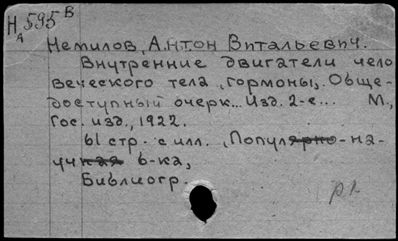 H 595 B
A
Немилов, Антон Витальевич.
Внутренние двигатели чело
веческого тела, гормоны. Обще-
доступный очерк... Изд. 2-е... М.,
Гос. изд., 1922.
61 стр. с илл. Популярно-на-
учная б-ка,
Библиогр.